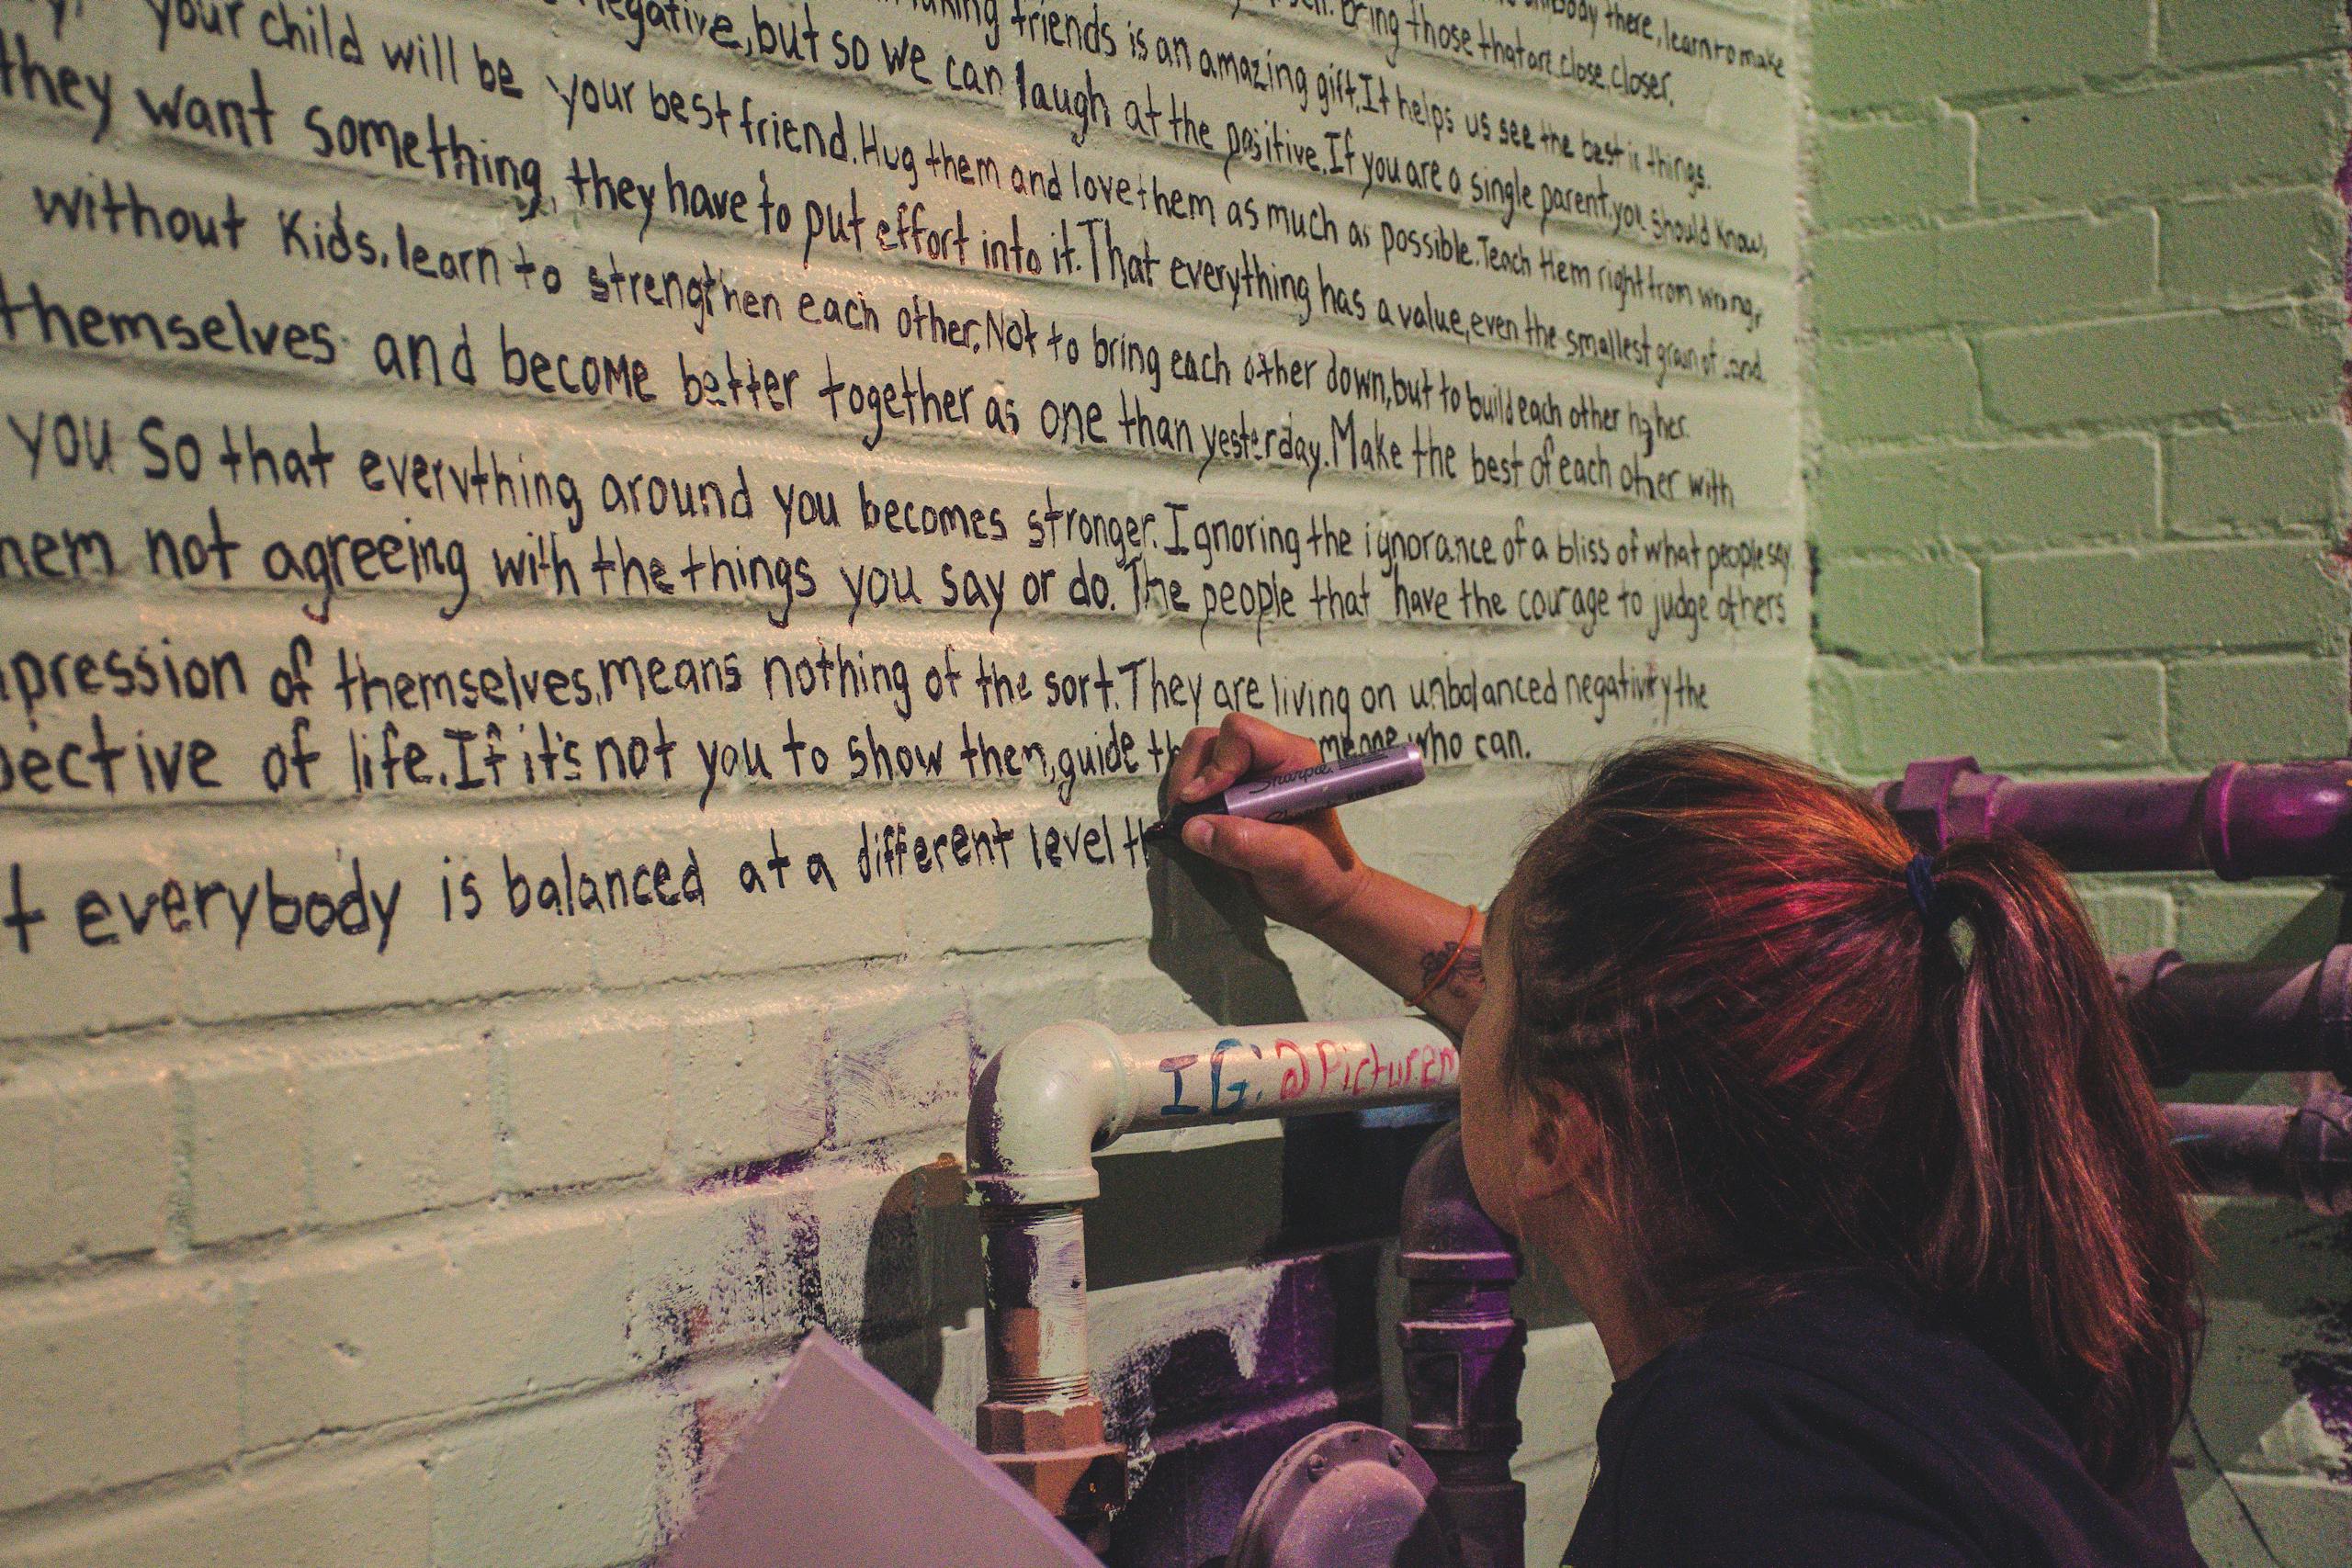 body there, learn to make
Bring those that are close, closer.
making friends is an amazing gift. It helps us see the best in things.
negative, but so we can laugh at the positive. If you are a single parent, you should know,
your child will be your best friend. Hug them and love them as much as possible. Teach them right from wrong,
they want something, they have to put effort into it. That everything has a value, even the smallest grain of
without Kids, learn to strengthen each other. Not to bring each other down, but to build each other higher.
themselves and become better together as one than yesterday. Make the best of each other with
you so that everything around you becomes stronger. Ignoring the ignorance of a bliss of what people say.
not agreeing with the things you say or do. The people that have the courage to judge others
pression of themselves, means nothing of the sort. They are living on unbalanced negativity the
pective of life. If it's not you to show them, guide who can.
everybody is balanced at a different level th
Sharpie
IG: @Picturem